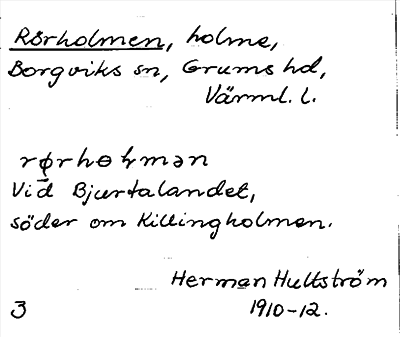 Rörholmen, holme,
Borgviks sn, Grums hd,
Värml. l.
rø̅rhɵɫmən
Vid Bjurtalandet,
söder om Killingholmen.
Herman Hultström
3 1910-12.